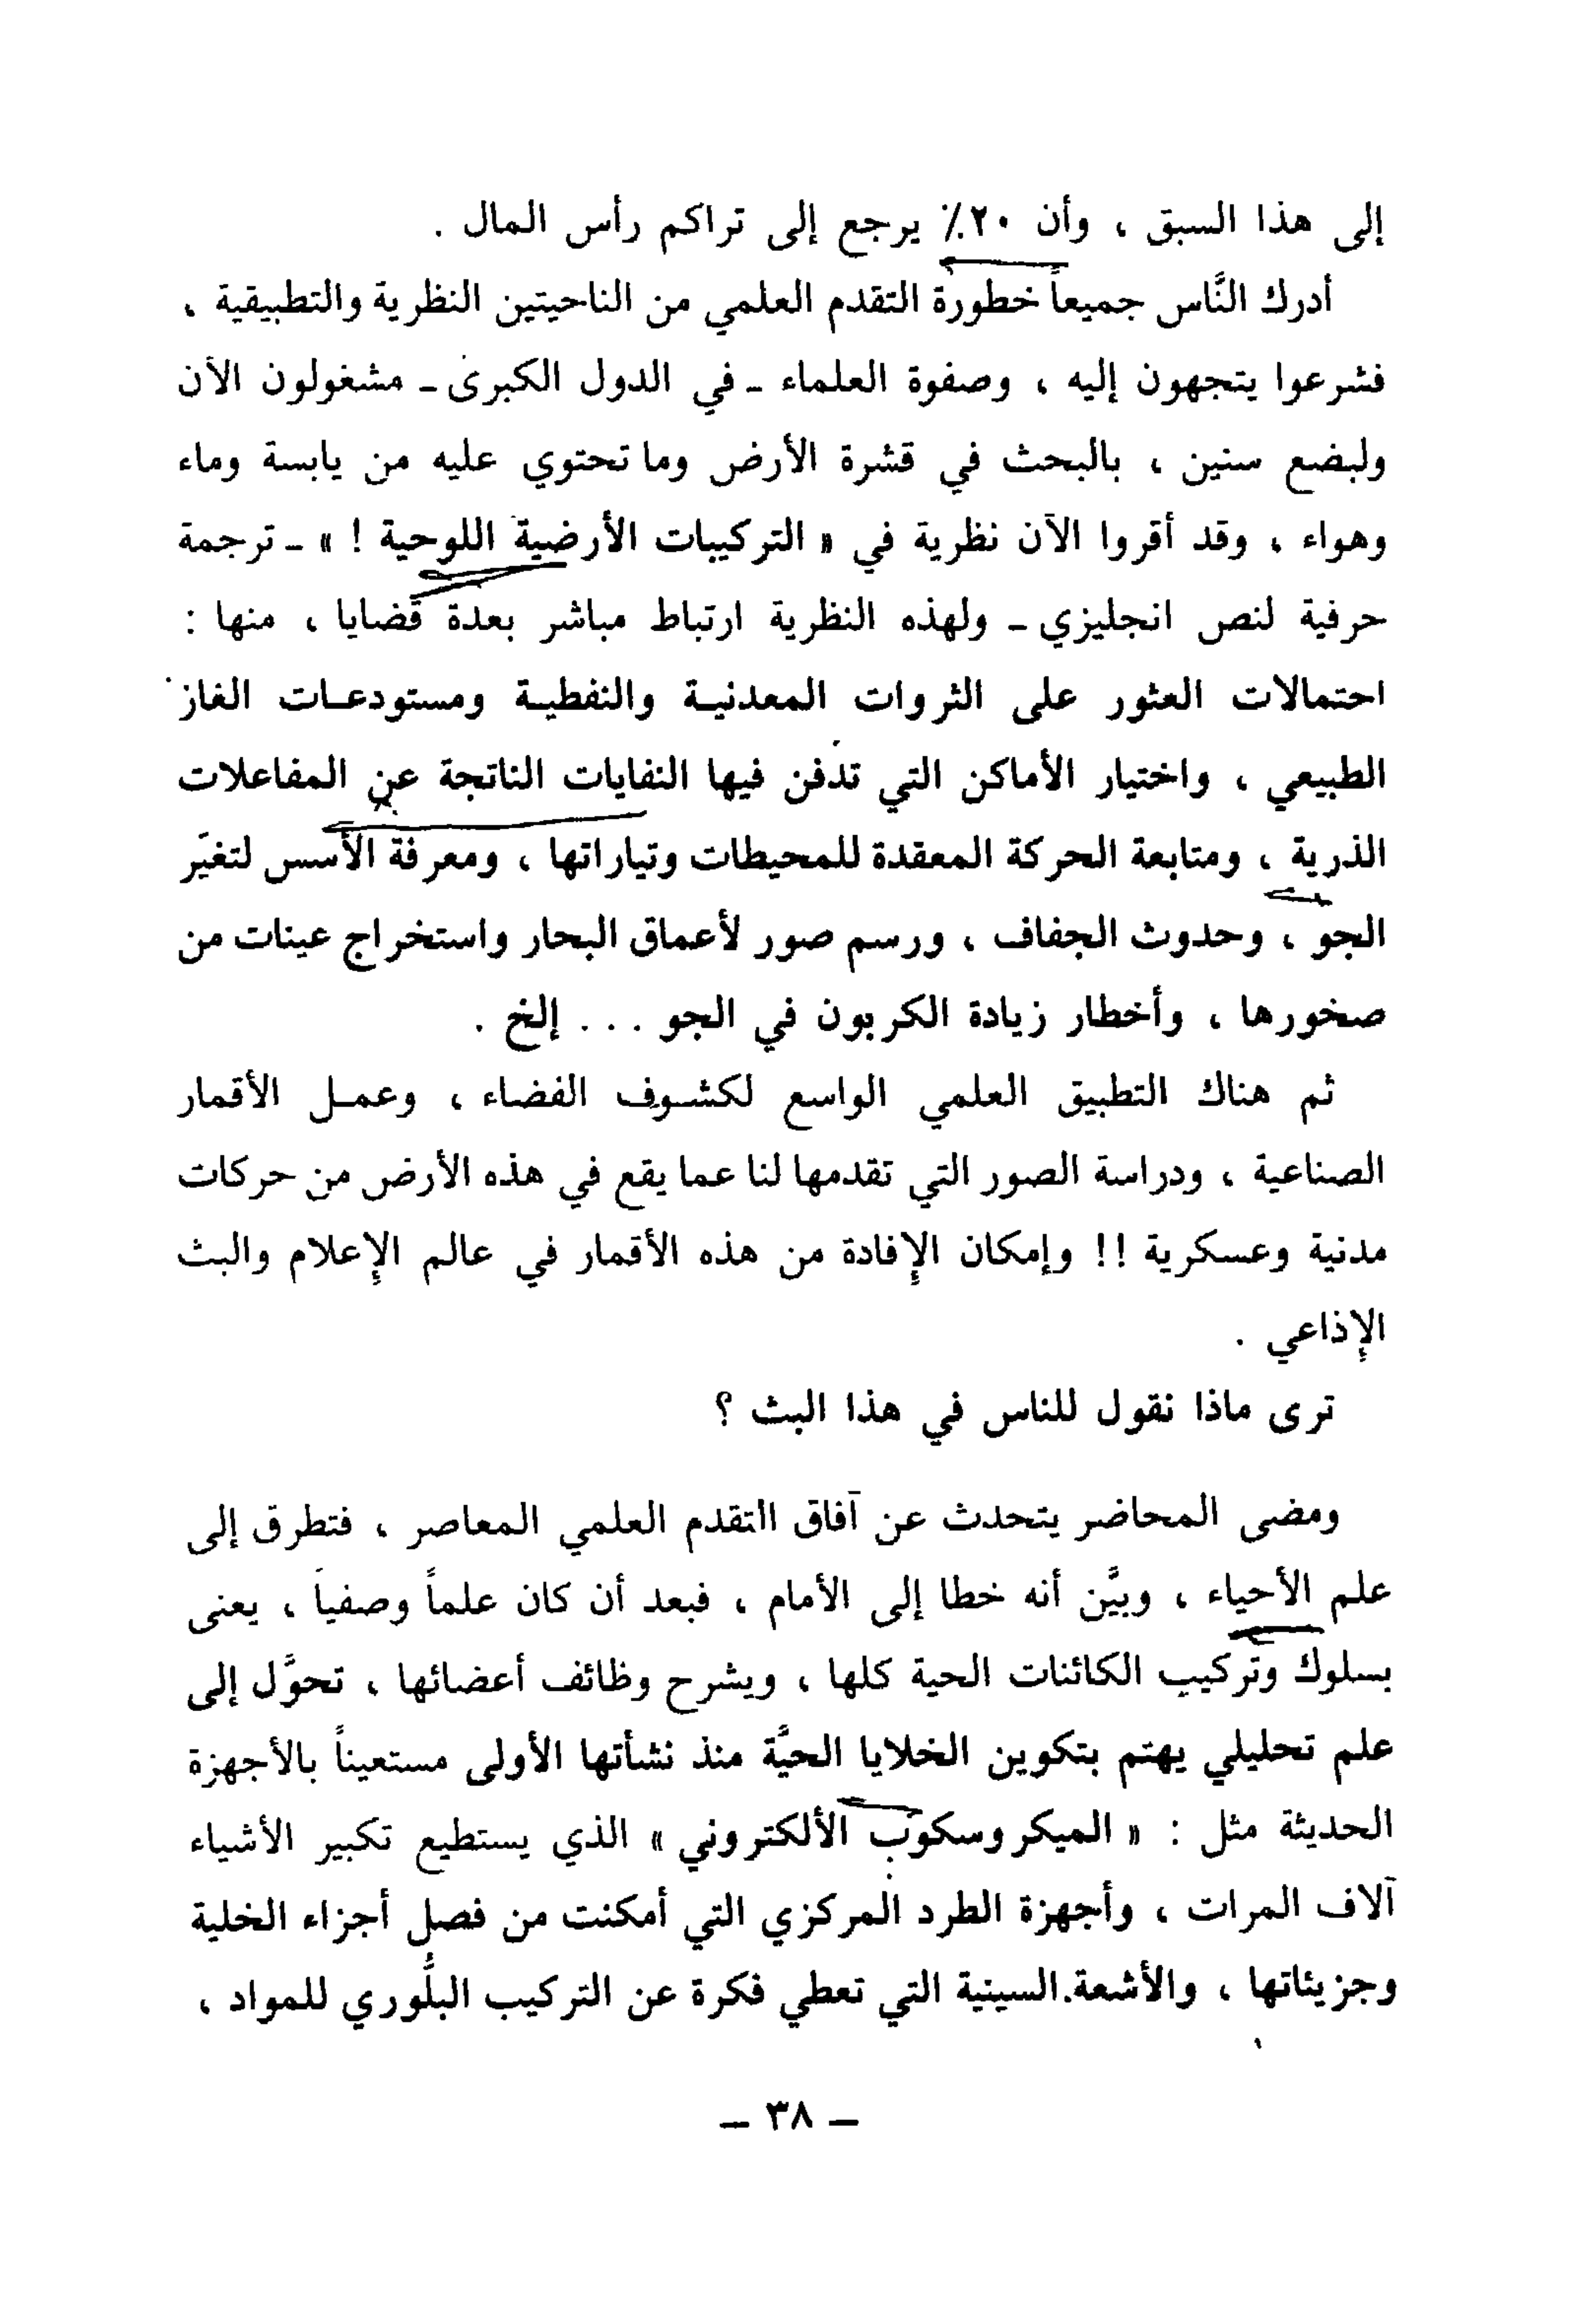 إلى هذا السبق ، وأن ٢٠٪ يرجع إلى تراكم رأس المال .
أدرك النَّاس جميعاً خطورة التقدم العلمي من الناحيتين النظرية والتطبيقية ،
فشرعوا يتجهون إليه ، وصفوة العلماء ـ في الدول الكبرى ـ مشغولون الآن
ولبضع سنين ، بالبحث في قشرة الأرض وما تحتوي عليه من يابسة وماء
وهواء ، وقد أقروا الآن نظرية في « التركيبات الأرضية اللوحية ! » ـ ترجمة
حرفية لنص انجليزي ـ ولهذه النظرية ارتباط مباشر بعدة قضايا ، منها :
احتمالات العثور على الثروات المعدنيـة والنفطيـة ومستودعـات الغاز
الطبيعي ، واختيار الأماكن التي تدفن فيها النفايات الناتجة عن المفاعلات
الذرية ، ومتابعة الحركة المعقدة للمحيطات وتياراتها ، ومعرفة الأسس لتغيّر
الجو ، وحدوث الجفاف ، ورسم صور لأعماق البحار واستخراج عينات من
صخورها ، وأخطار زيادة الكربون في الجو . . . إلخ .
ثم هناك التطبيق العلمي الواسع لكشـوف الفضاء ، وعمـل الأقمار
الصناعية ، ودراسة الصور التي تقدمها لنا عما يقع في هذه الأرض من حركات
مدنية وعسكرية !! وإمكان الإفادة من هذه الأقمار في عالم الإعلام والبث
الإذاعي .
ترى ماذا نقول للناس في هذا البث ؟
ومضى المحاضر يتحدث عن آفاق التقدم العلمي المعاصر ، فتطرق إلى
علم الأحياء ، وبيَّن أنه خطا إلى الأمام ، فبعد أن كان علماً وصفياً ، يعنى
بسلوك وتركيب الكائنات الحية كلها ، ويشرح وظائف أعضائها ، تحوَّل إلى
علم تحليلي يهتم بتكوين الخلايا الحيَّة منذ نشأتها الأولى مستعيناً بالأجهزة
الحديثة مثل : « الميكروسكوب الألكتروني » الذي يستطيع تكبير الأشياء
آلاف المرات ، وأجهزة الطرد المركزي التي أمكنت من فصل أجزاء الخلية
وجزيئاتها ، والأشعة السينية التي تعطي فكرة عن التركيب البلُّوري للمواد ،
– ٣٨ –